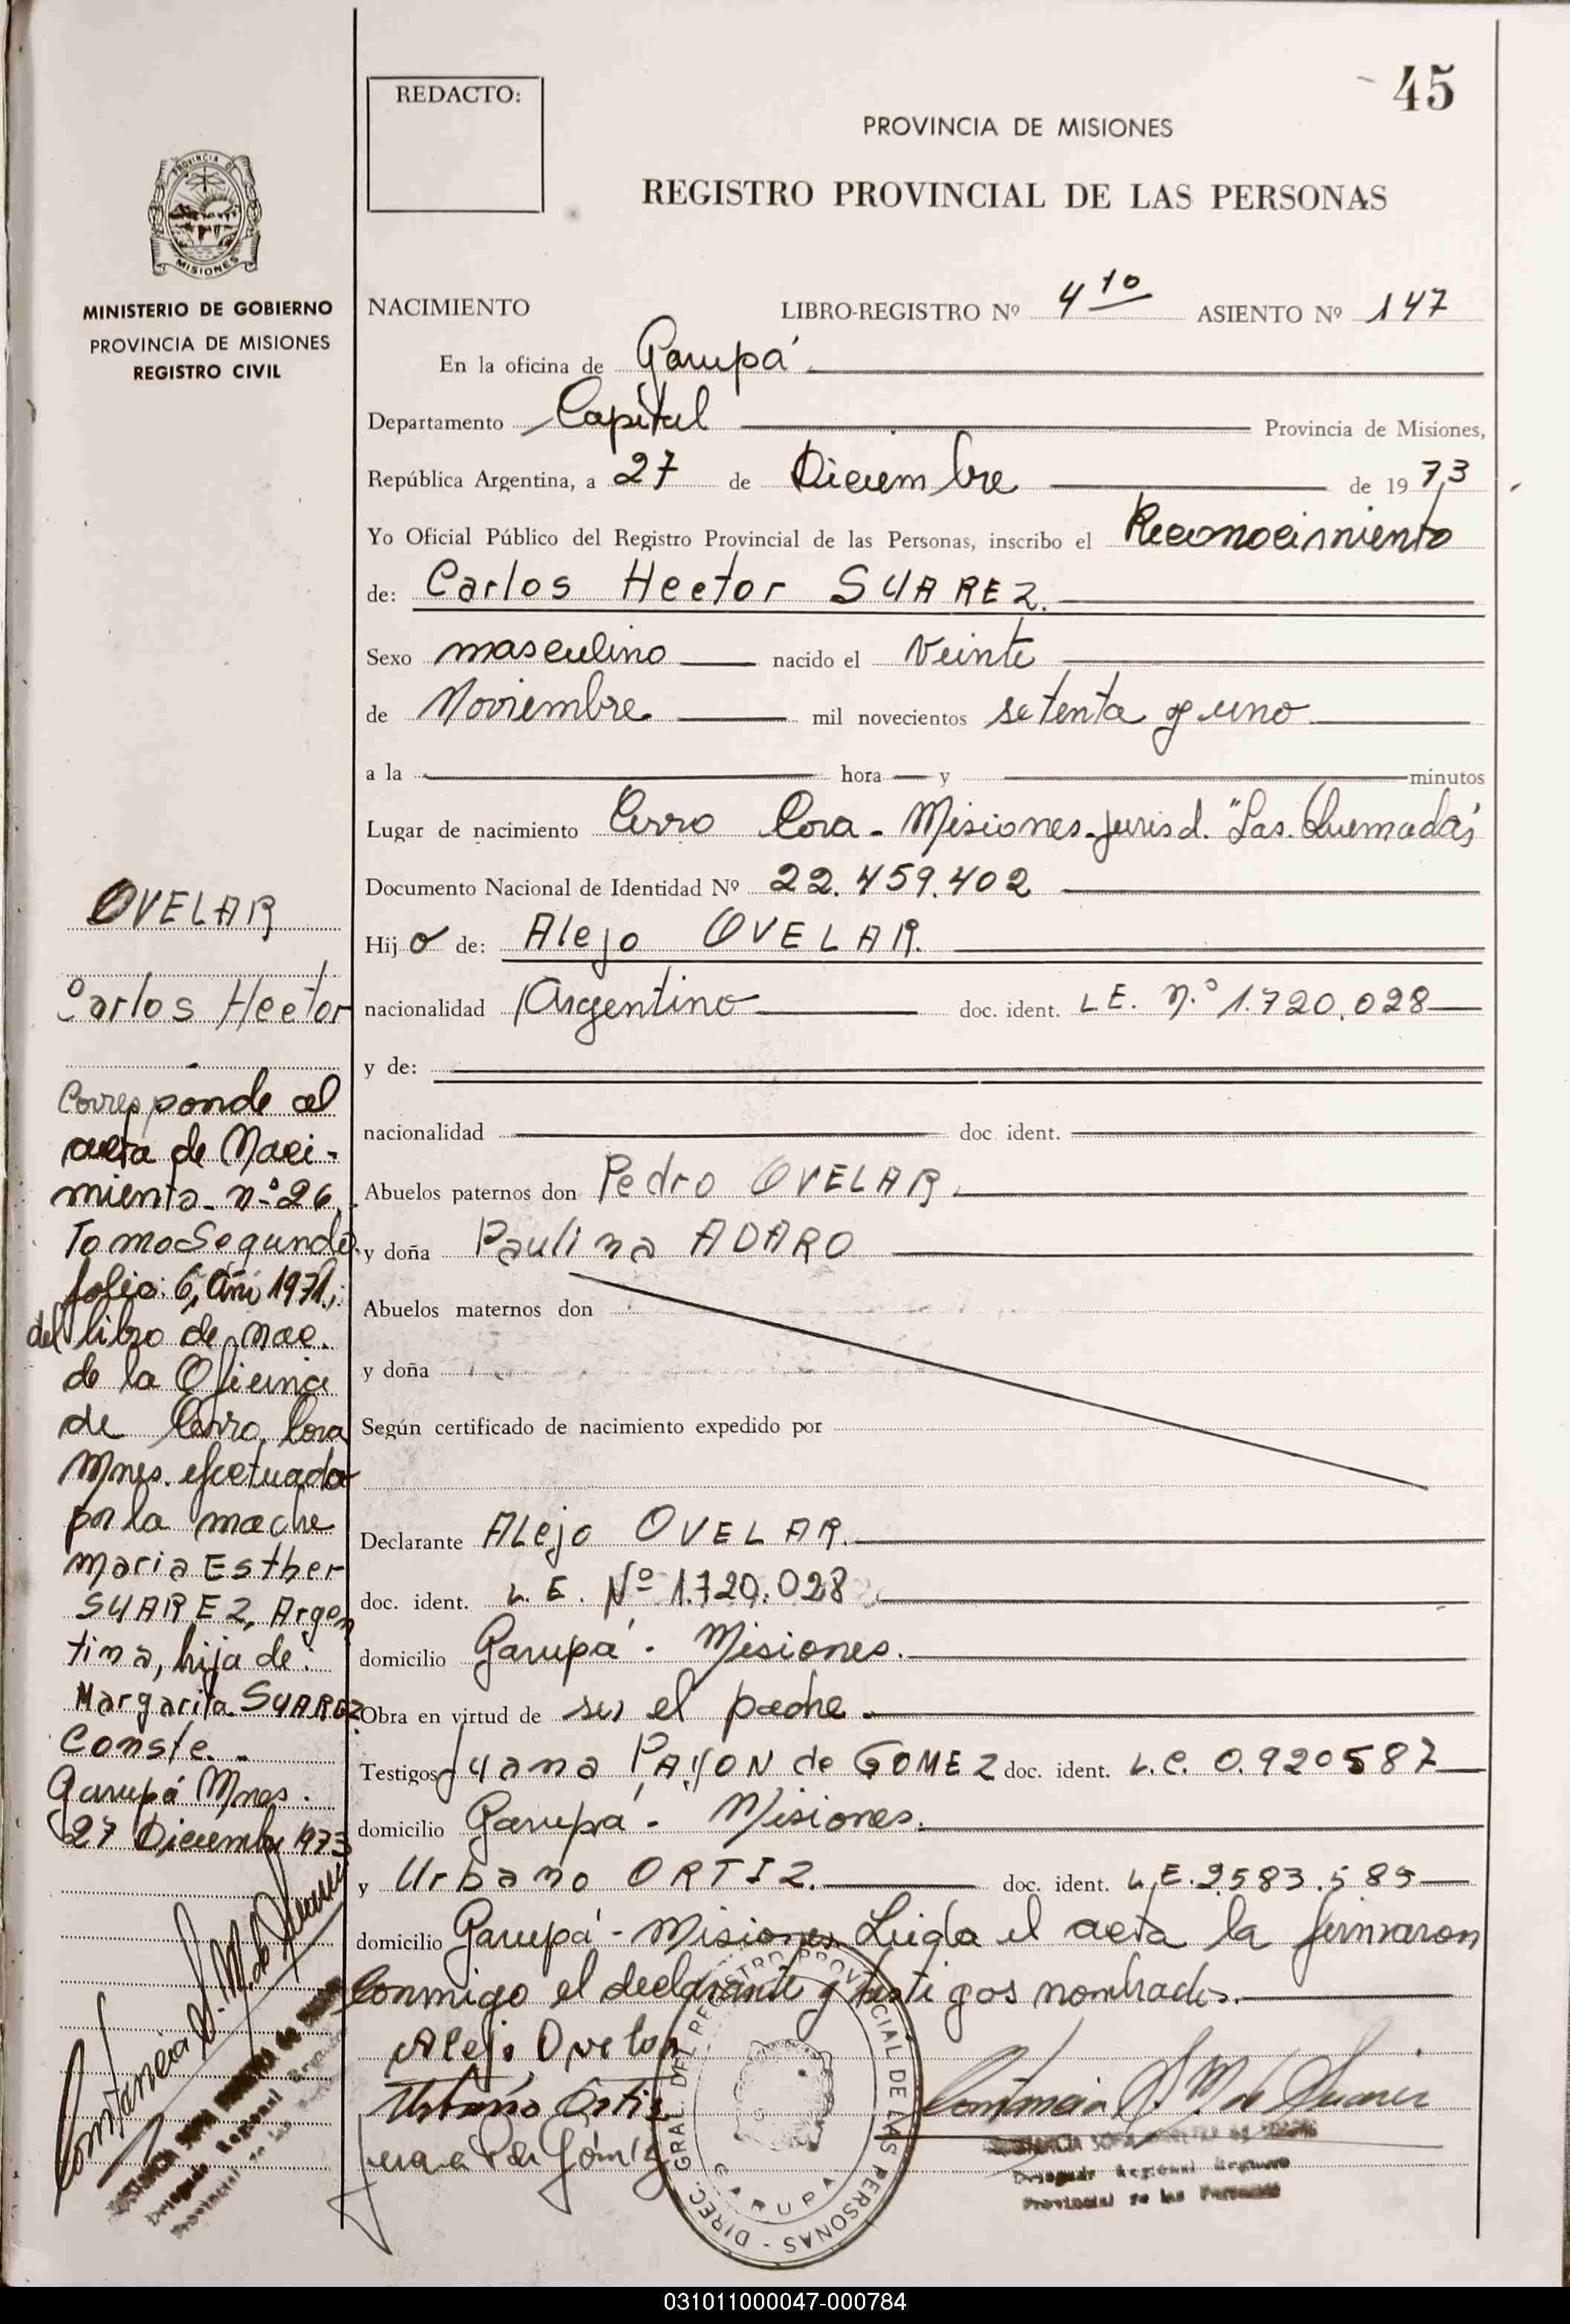 45
REDACTO:
PROVINCIA DE MISIONES
REGISTRO PROVINCIAL DE LAS PERSONAS
PROVINCIA DE
MISIONES
MINISTERIO DE GOBIERNO
PROVINCIA DE MISIONES
REGISTRO CIVIL
NACIMIENTO LIBRO-REGISTRO Nº 4to ASIENTO Nº 147
En la oficina de Garupá
Departamento Capital Provincia de Misiones,
República Argentina, a 27 de Diciembre de 1973
Yo Oficial Público del Registro Provincial de las Personas, inscribo el Reconocimiento
de: Carlos Hector SUAREZ.
Sexo masculino nacido el Veinte
de Noviembre mil novecientos setenta y uno
a la hora y minutos
Lugar de nacimiento Cerro Cora - Misiones - jurisd. "Las Quemadas"
Documento Nacional de Identidad Nº 22.459.402
Hijo de: Alejo OVELAR.
nacionalidad Argentino doc. ident. L.E. n.º 1.720.028
y de:
nacionalidad doc. ident.
Abuelos paternos don Pedro OVELAR.
y doña Paulina ADARO
Abuelos maternos don
y doña
Según certificado de nacimiento expedido por
Declarante ALejo OVELAR.
doc. ident. L.E. Nº 1.720.028
domicilio Garupá - Misiones.
Obra en virtud de ser el padre.
Testigos Juana PAYON de GOMEZ doc. ident. L.C. 0.920587
domicilio Garupá - Misiones.
y Urbano ORTIZ. doc. ident. L.E. 2583.585
domicilio Garupá - Misiones Leida el acta la firmaron
conmigo el declarante y testigos nombrados.
Alejo Ovelar
Urbano Ortiz
Juana P de Gómez
DIREC. GRAL. DEL REGISTRO PROVINCIAL DE LAS PERSONAS -
GARUPA
Constancia S. M. de Suarez
Delegada Regional Registro
Provincial de las Personas
OVELAR
Carlos Hector
Corresponde al
acta de Naci-
miento nº 26
Tomo Segundo
folio: 6, Año 1971,
del libro de nac.
de la Oficina
de Cerro Cora
Mnes. efectuada
por la madre
Maria Esther
SUAREZ, Argen
tina, hija de:
Margarita SUAREZ
Conste.-
Garupá Mnes.
27 Diciembre 1973
Constancia S. M. de Suarez
Delegada Regional
Provincial de las
031011000047-000784